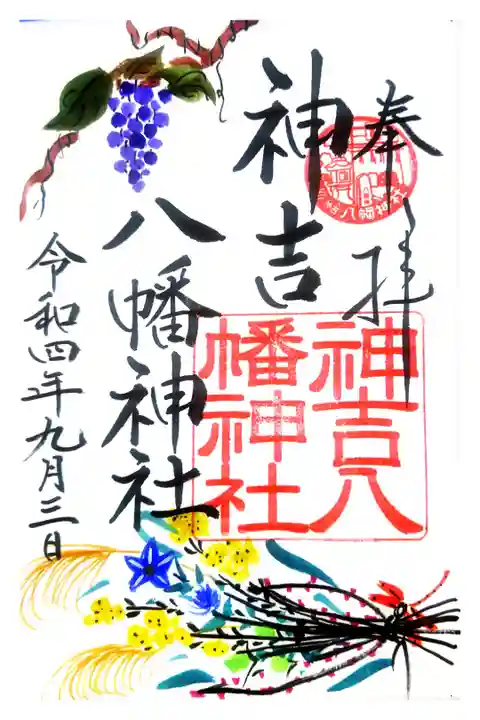 奉拝
神吉
八幡神社
令和四年九月三日
神吉八
幡神社
八幡神社